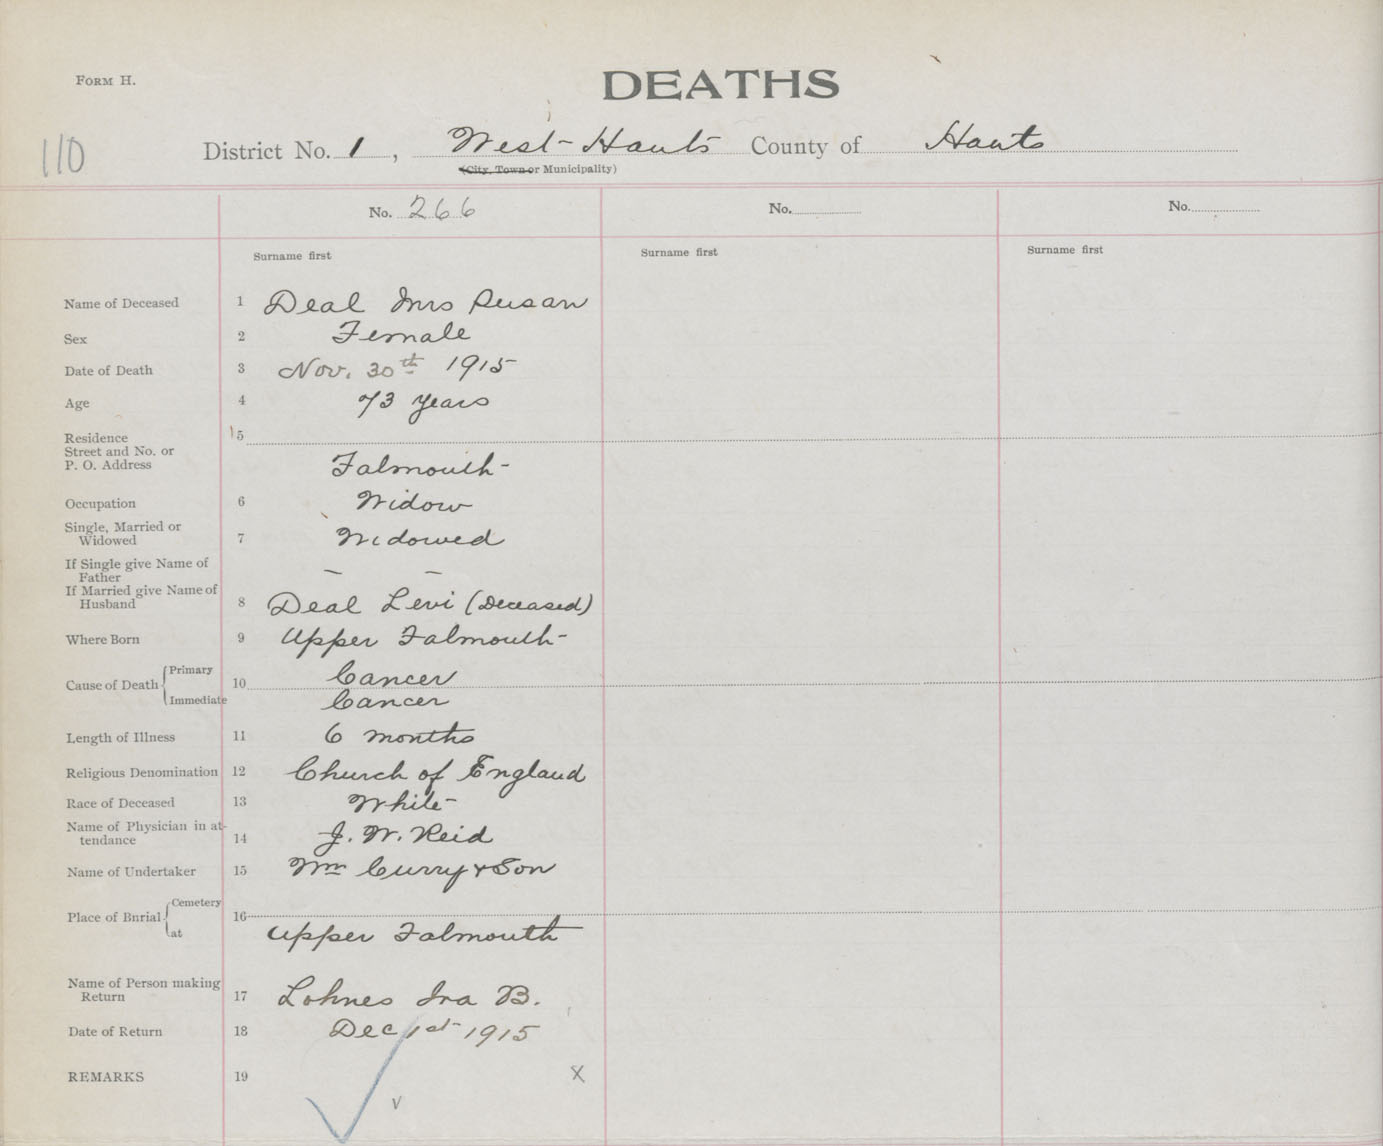 FORM H.
DEATHS
110
District No. 1, West-Hants County of Hants
(City, Town or Municipality)
No. 266 No. No.
Surname first Surname first Surname first
Name of Deceased 1 Deal Mrs Susan
Sex 2 Female
Date of Death 3 Nov. 30th 1915
Age 4 73 years
Residence 5
Street and No. or
P. O. Address Falmouth-
Occupation 6 Widow
Single, Married or
Widowed 7 Widowed
If Single give Name of
Father — —
If Married give Name of
Husband 8 Deal Levi (Deceased)
Where Born 9 Upper Falmouth-
Primary Cancer
Cause of Death 10
Immediate Cancer
Length of Illness 11 6 months
Religious Denomination 12 Church of England
Race of Deceased 13 White-
Name of Physician in at-
tendance 14 J. W. Reid
Name of Undertaker 15 Wm Curry & Son
Cemetery
Place of Bnrial 16
at Upper Falmouth
Name of Person making
Return 17 Lohnes Ira B.
Date of Return 18 Dec 1st 1915
REMARKS 19 x
v